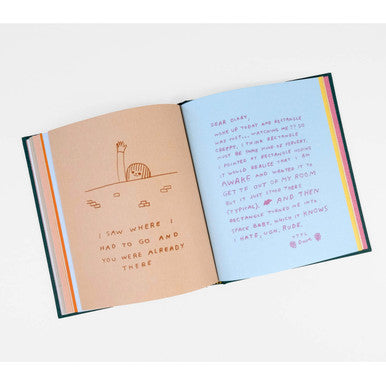 I SAW WHERE I
HAD TO GO AND
YOU WERE ALREADY
THERE
DEAR DIARY,
WOKE UP TODAY AND RECTANGLE
WAS JUST... WATCHING ME?? SO
CREEPY. I THINK RECTANGLE
MUST BE SOME KIND OF PERVERT.
I POINTED AT RECTANGLE HOPING
IT WOULD REALIZE THAT I AM
AWAKE AND WANTED IT TO
GET TF OUT OF MY ROOM
BUT IT JUST STOOD THERE
(TYPICAL). AND THEN
RECTANGLE TURNED ME INTO
SPACE BABY, WHICH IT KNOWS
I HATE, UGH, RUDE.
TTYL